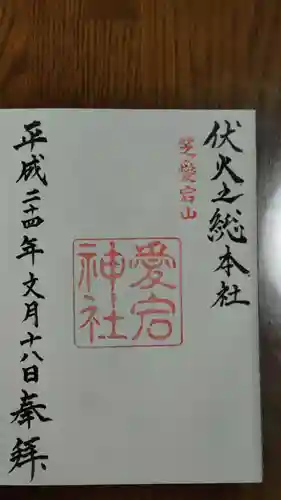 伏火之総本社
芝愛宕山
愛宕
神社
平成二十四年文月十八日奉拝